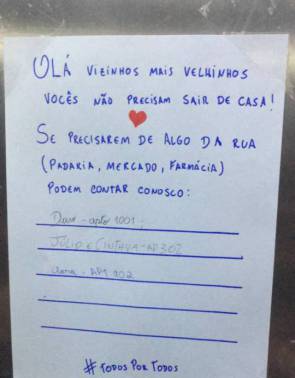 OLÁ VIZINHOS MAIS VELHINHOS
VOCÊS NÃO PRECISAM SAIR DE CASA!
SE PRECISAREM DE ALGO DA RUA
(PADARIA, MERCADO, FARMÁCIA)
PODEM CONTAR CONOSCO:
- apto 1001
JÚLIO E CINTHYA - AP 302
- APT 902
#TODOS POR TODOS